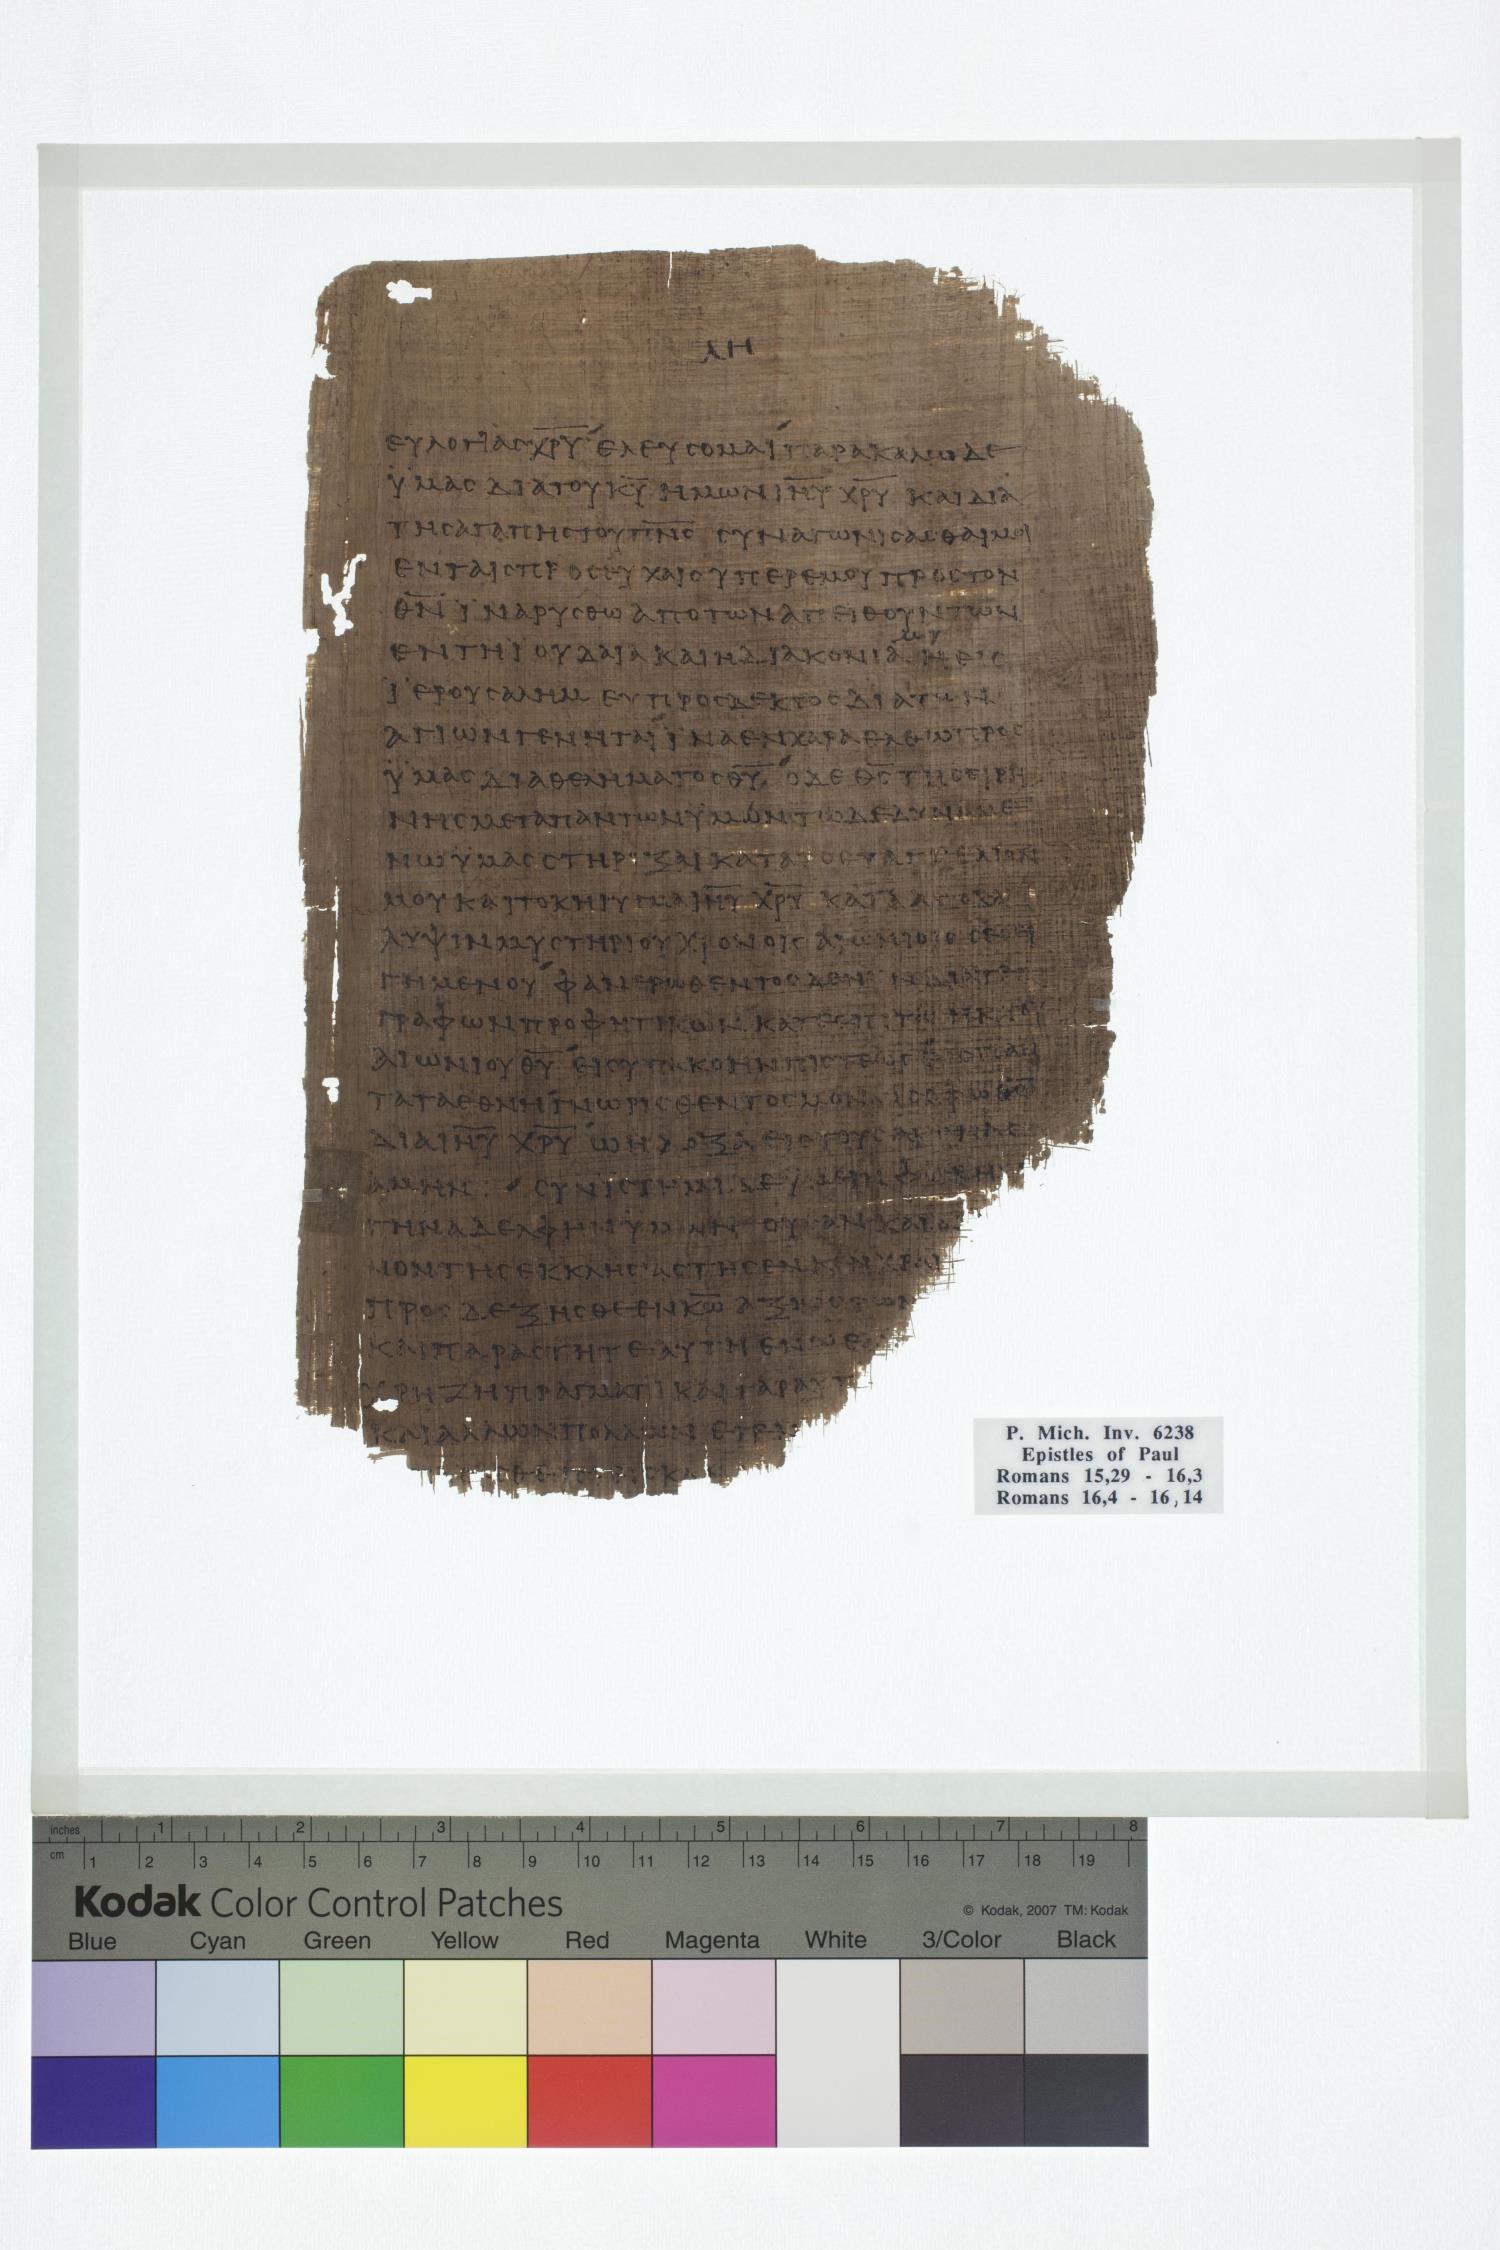 ΛΗ
ΕΥΛΟΓΙΑΣ ΧΡΥ ΕΛΕΥΣΟΜΑΙ ΠΑΡΑΚΑΛΩ ΔΕ
ΫΜΑΣ ΔΙΑ ΤΟΥ ΚΥ ΗΜΩΝ ΙΗΥ ΧΡΥ ΚΑΙ ΔΙΑ
ΤΗΣ ΑΓΑΠΗΣ ΤΟΥ ΠΝΣ ΣΥΝΑΓΩΝΙΣΑΣΘΑΙ ΜΟΙ
ΕΝ ΤΑΙΣ ΠΡΟΣΕΥΧΑΙΣ ΥΠΕΡ ΕΜΟΥ ΠΡΟΣ ΤΟΝ
ΘΝ ΪΝΑ ΡΥΣΘΩ ΑΠΟ ΤΩΝ ΑΠΕΙΘΟΥΝΤΩΝ
ΕΝ ΤΗ ΙΟΥΔΑΙΑ ΚΑΙ Η ΔΙΑΚΟΝΙΑ ΜΟΥ Η ΕΙΣ
ΪΕΡΟΥΣΑΛΗΜ ΕΥΠΡΟΣΔΕΚΤΟΣ ΔΙΑ ΤΩΝ
ΑΓΙΩΝ ΓΕΝΗΤΑΙ ΪΝΑ ΕΝ ΧΑΡΑ ΕΛΘΩ ΠΡΟΣ
ΫΜΑΣ ΔΙΑ ΘΕΛΗΜΑΤΟΣ ΘΥ Ο ΔΕ ΘΣ ΤΗΣ ΕΙΡΗ
ΝΗΣ ΜΕΤΑ ΠΑΝΤΩΝ ΥΜΩΝ ΤΩ ΔΕ ΔΥΝΑΜΕ
ΝΩ ΥΜΑΣ ΣΤΗΡΙΞΑΙ ΚΑΤΑ ΤΟ ΕΥΑΓΓΕΛΙΟΝ
ΜΟΥ ΚΑΙ ΤΟ ΚΗΡΥΓΜΑ ΙΗΥ ΧΡΥ ΚΑΤΑ ΑΠΟΚΑ
ΛΥΨΙΝ ΜΥΣΤΗΡΙΟΥ ΧΡΟΝΟΙΣ ΑΙΩΝΙΟΙΣ ΣΕΣΕΙ
ΓΗΜΕΝΟΥ ΦΑΝΕΡΩΘΕΝΤΟΣ ΔΕ ΝΥΝ ΔΙΑ ΤΕ
ΓΡΑΦΩΝ ΠΡΟΦΗΤΙΚΩΝ ΚΑΤ ΕΠΙΤΑΓΗΝ ΤΟΥ
ΑΙΩΝΙΟΥ ΘΥ ΕΙΣ ΥΠΑΚΟΗΝ ΠΙΣΤΕΩΣ ΕΙΣ ΠΑΝ
ΤΑ ΤΑ ΕΘΝΗ ΓΝΩΡΙΣΘΕΝΤΟΣ ΜΟΝΩ ΣΟΦΩ ΘΩ
ΔΙΑ ΙΗΥ ΧΡΥ Ω Η ΔΟΞΑ ΕΙΣ ΤΟΥΣ ΑΙΩΝΑΣ
ΑΜΗΝ: ΣΥΝΙΣΤΗΜΙ ΔΕ ΥΜΕΙΝ ΦΟΙΒΗΝ
ΤΗΝ ΑΔΕΛΦΗΝ ΫΜΩΝ ΟΥΣΑΝ ΚΑΙ
ΝΟΝ ΤΗΣ ΕΚΚΛΗΣΙΑΣ ΤΗΣ ΕΝ ΚΕΝΧΡΑΙ
ΠΡΟΣΔΕΞΗΣΘΕ ΕΝ ΚΩ ΑΞΙΩΣ ΤΩΝ
ΚΑΙ ΠΑΡΑΣΤΗΤΕ ΑΥΤΗ ΕΝ Ω Ε
ΧΡΗΖΗ ΠΡΑΓΜΑΤΙ ΚΑΙ ΓΑΡ ΑΥΤ
ΚΑΙ ΑΛΛΩΝ ΠΟΛΛΩΝ
P. Mich. Inv. 6238
Epistles of Paul
Romans 15,29 - 16,3
Romans 16,4 - 16,14
inches 1 2 3 4 5 6 7 8
cm 1 2 3 4 5 6 7 8 9 10 11 12 13 14 15 16 17 18 19
Kodak Color Control Patches
© Kodak, 2007 TM: Kodak
Blue Cyan Green Yellow Red Magenta White 3/Color Black